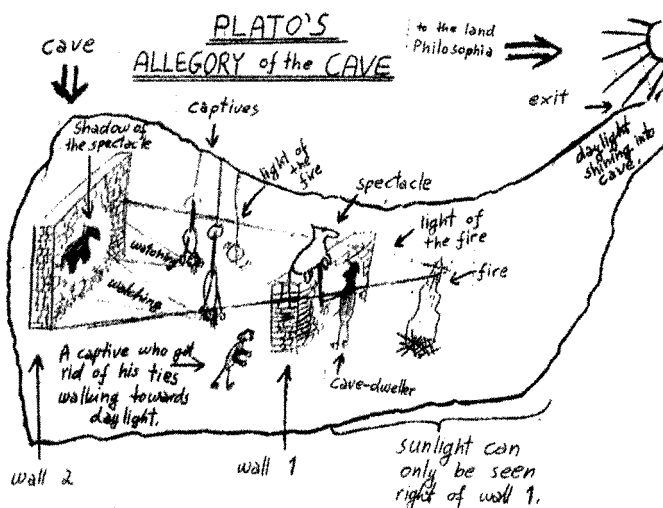 PLATO'S
ALLEGORY of the CAVE
to the land
Philosophia
cave
captives
exit
daylight
shining into
cave.
Shadow of
the spectacle
light of
the
fire
spectacle
light of
the fire
fire
watching
watching
A captive who got
rid of his ties
walking towards
daylight.
Cave-dweller
wall 2
wall 1
sunlight can
only be seen
right of wall 1.